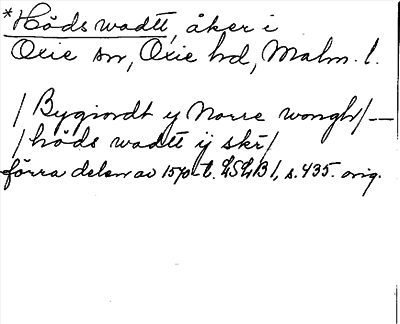 *Höds wadtt, åker i
Oxie sn, Oxie hd, Malm. l.
/Bygiordt y Norre wongh/—
/höds wadtt ÿ skr/
förra delen av 1570-t. LSLB1, s. 435. orig.